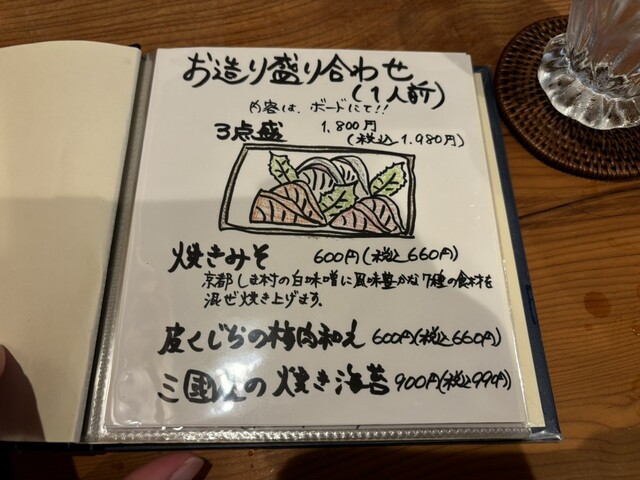 お造り盛り合わせ
(1人前)
内容は、ボードにて!!
3点盛 1,800円
(税込1,980円)
焼きみそ 600円(税込660円)
京都しま村の白味噌に風味豊かな7種の食材を
混ぜ焼き上げます。
皮くじらの梅肉和え 600円(税込660円)
三國屋の焼き海苔 900円(税込990円)